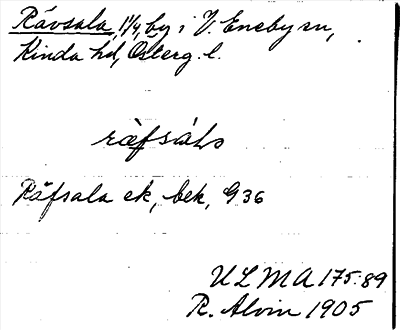 Rävsala, 1/4, by i V. Eneby sn,
Kinda hd, Österg. l.
Räfsala ek, bek, G 36
ULMA 175:89
R. Alvin 1905